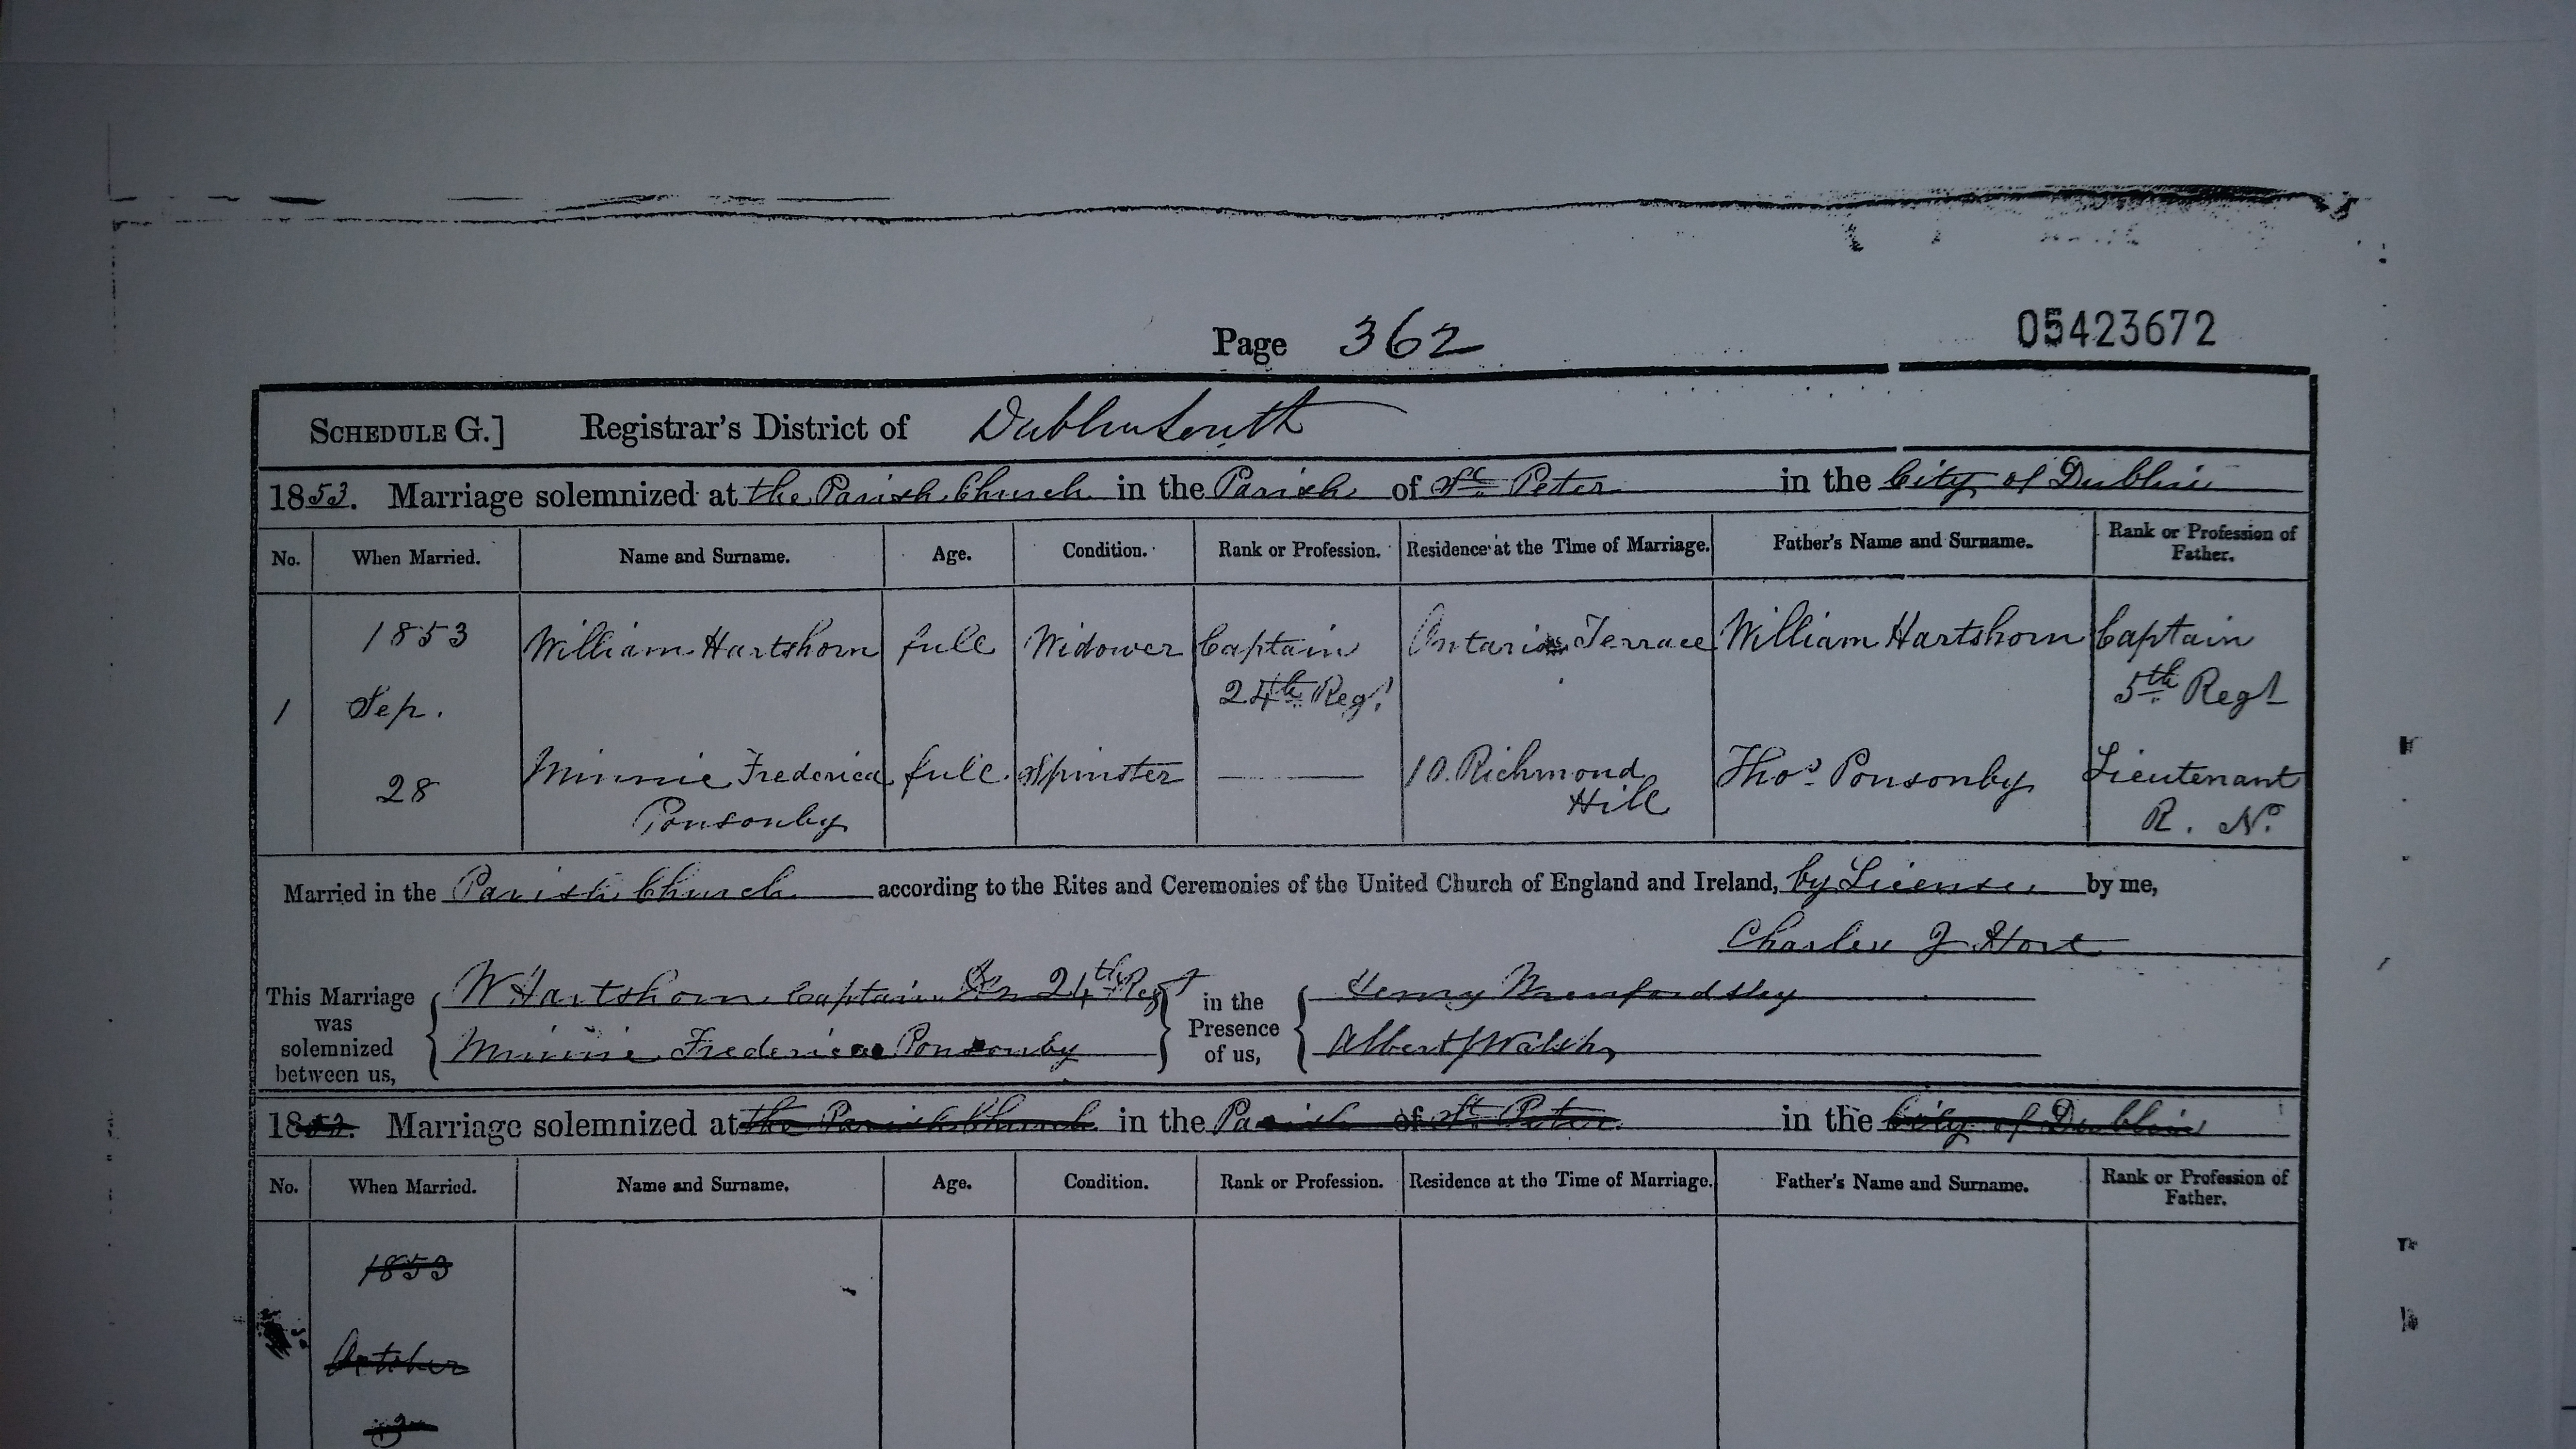 Page 362
05423672
SCHEDULE G.] Registrar's District of Dublin South
1853. Marriage solemnized at the Parish Church in the Parish of St. Peter in the City of Dublin
No. When Married. Name and Surname. Age. Condition. Rank or Profession. Residence at the Time of Marriage. Father's Name and Surname. Rank or Profession of Father.
1853 William Hartshorn full Widower Captain Ontario Terrace William Hartshorn Captain
24th Regt. 5th Regt
1 Sep.
28 Minnie Frederica full Spinster 10. Richmond Thos. Ponsonby Lieutenant
Ponsonby Hill R. N.
Married in the Parish Church according to the Rites and Ceremonies of the United Church of England and Ireland, by License by me,
Charles J Hort
This Marriage was solemnized between us, W Hartshorn Captain 24th Regt in the Presence of us, Henry
Minnie Frederica Ponsonby Albert Walsh
1853. Marriage solemnized at the Parish Church in the Parish of St. Peter in the City of Dublin
No. When Married. Name and Surname. Age. Condition. Rank or Profession. Residence at the Time of Marriage. Father's Name and Surname. Rank or Profession of Father.
1853
October